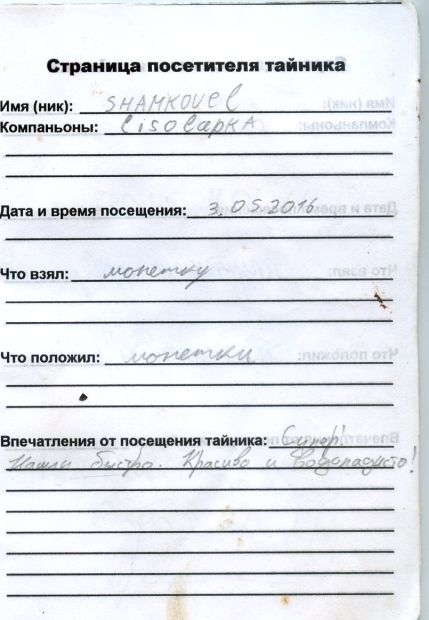 Страница посетителя тайника
Имя (ник): SHAMKOVEL
Компаньоны: LISOLAPKA
Дата и время посещения: 3.05.2016
Что взял: монетку
Что положил: монетки
Впечатления от посещения тайника: Супер!
Нашли быстро. Красиво и водопадисто!